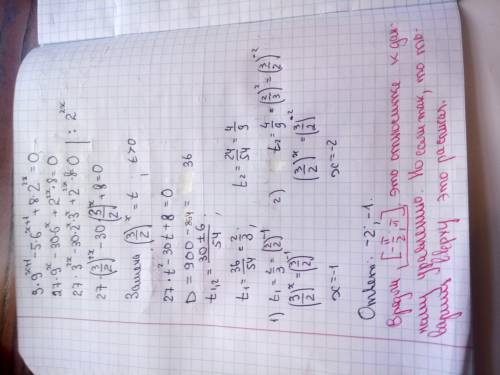 3·9ˣ⁺¹ - 5·6ˣ⁺¹ + 8·2²ˣ = 0
27·9ˣ - 30·6ˣ + 2²ˣ·8 = 0
27·3²ˣ - 30·2ˣ·3ˣ + 2²ˣ·8 = 0 | : 2²ˣ
27(3/2)²ˣ - 30(3/2)ˣ + 8 = 0
Замена (3/2)ˣ = t , t>0
27t² - 30t + 8 = 0
D = 900 - 864 = 36
t₁,₂ = 30±6/54
t₁ = 36/54 = 2/3, t₂ = 24/54 = 4/9
1) t₁ = 2/3 = (3/2)⁻¹ 2) t₂ = 4/9 = (2/3)² = (3/2)⁻²
(3/2)ˣ = (3/2)⁻¹ (3/2)ˣ = (3/2)⁻²
x = -1 x = -2
Ответ: -2; -1.
[-π/2; π], это к дан-
ному уравнению. Но если так, то то-
варищ вверху это